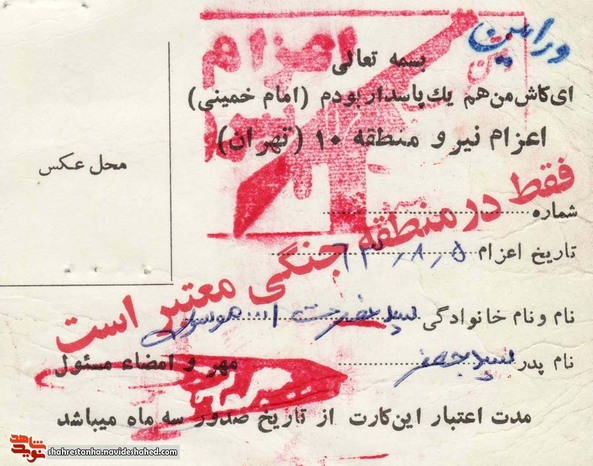 ورامین
اعزام
بسمه تعالی
ای کاش من هم یك پاسدار بودم (امام خمینی)
اعزام نیرو منطقه ۱۰ (تهران)
محل عکس
فقط در منطقه جنگی معتبر است
شماره
تاریخ اعزام ۶۳/۸/۵
نام و نام خانوادگی سید
نام پدر سید جعفر
مهر و امضاء مسئول
مدت اعتبار این کارت از تاریخ صدور سه ماه میباشد
نوید شاهد
shahrestanha.navideshahed.com